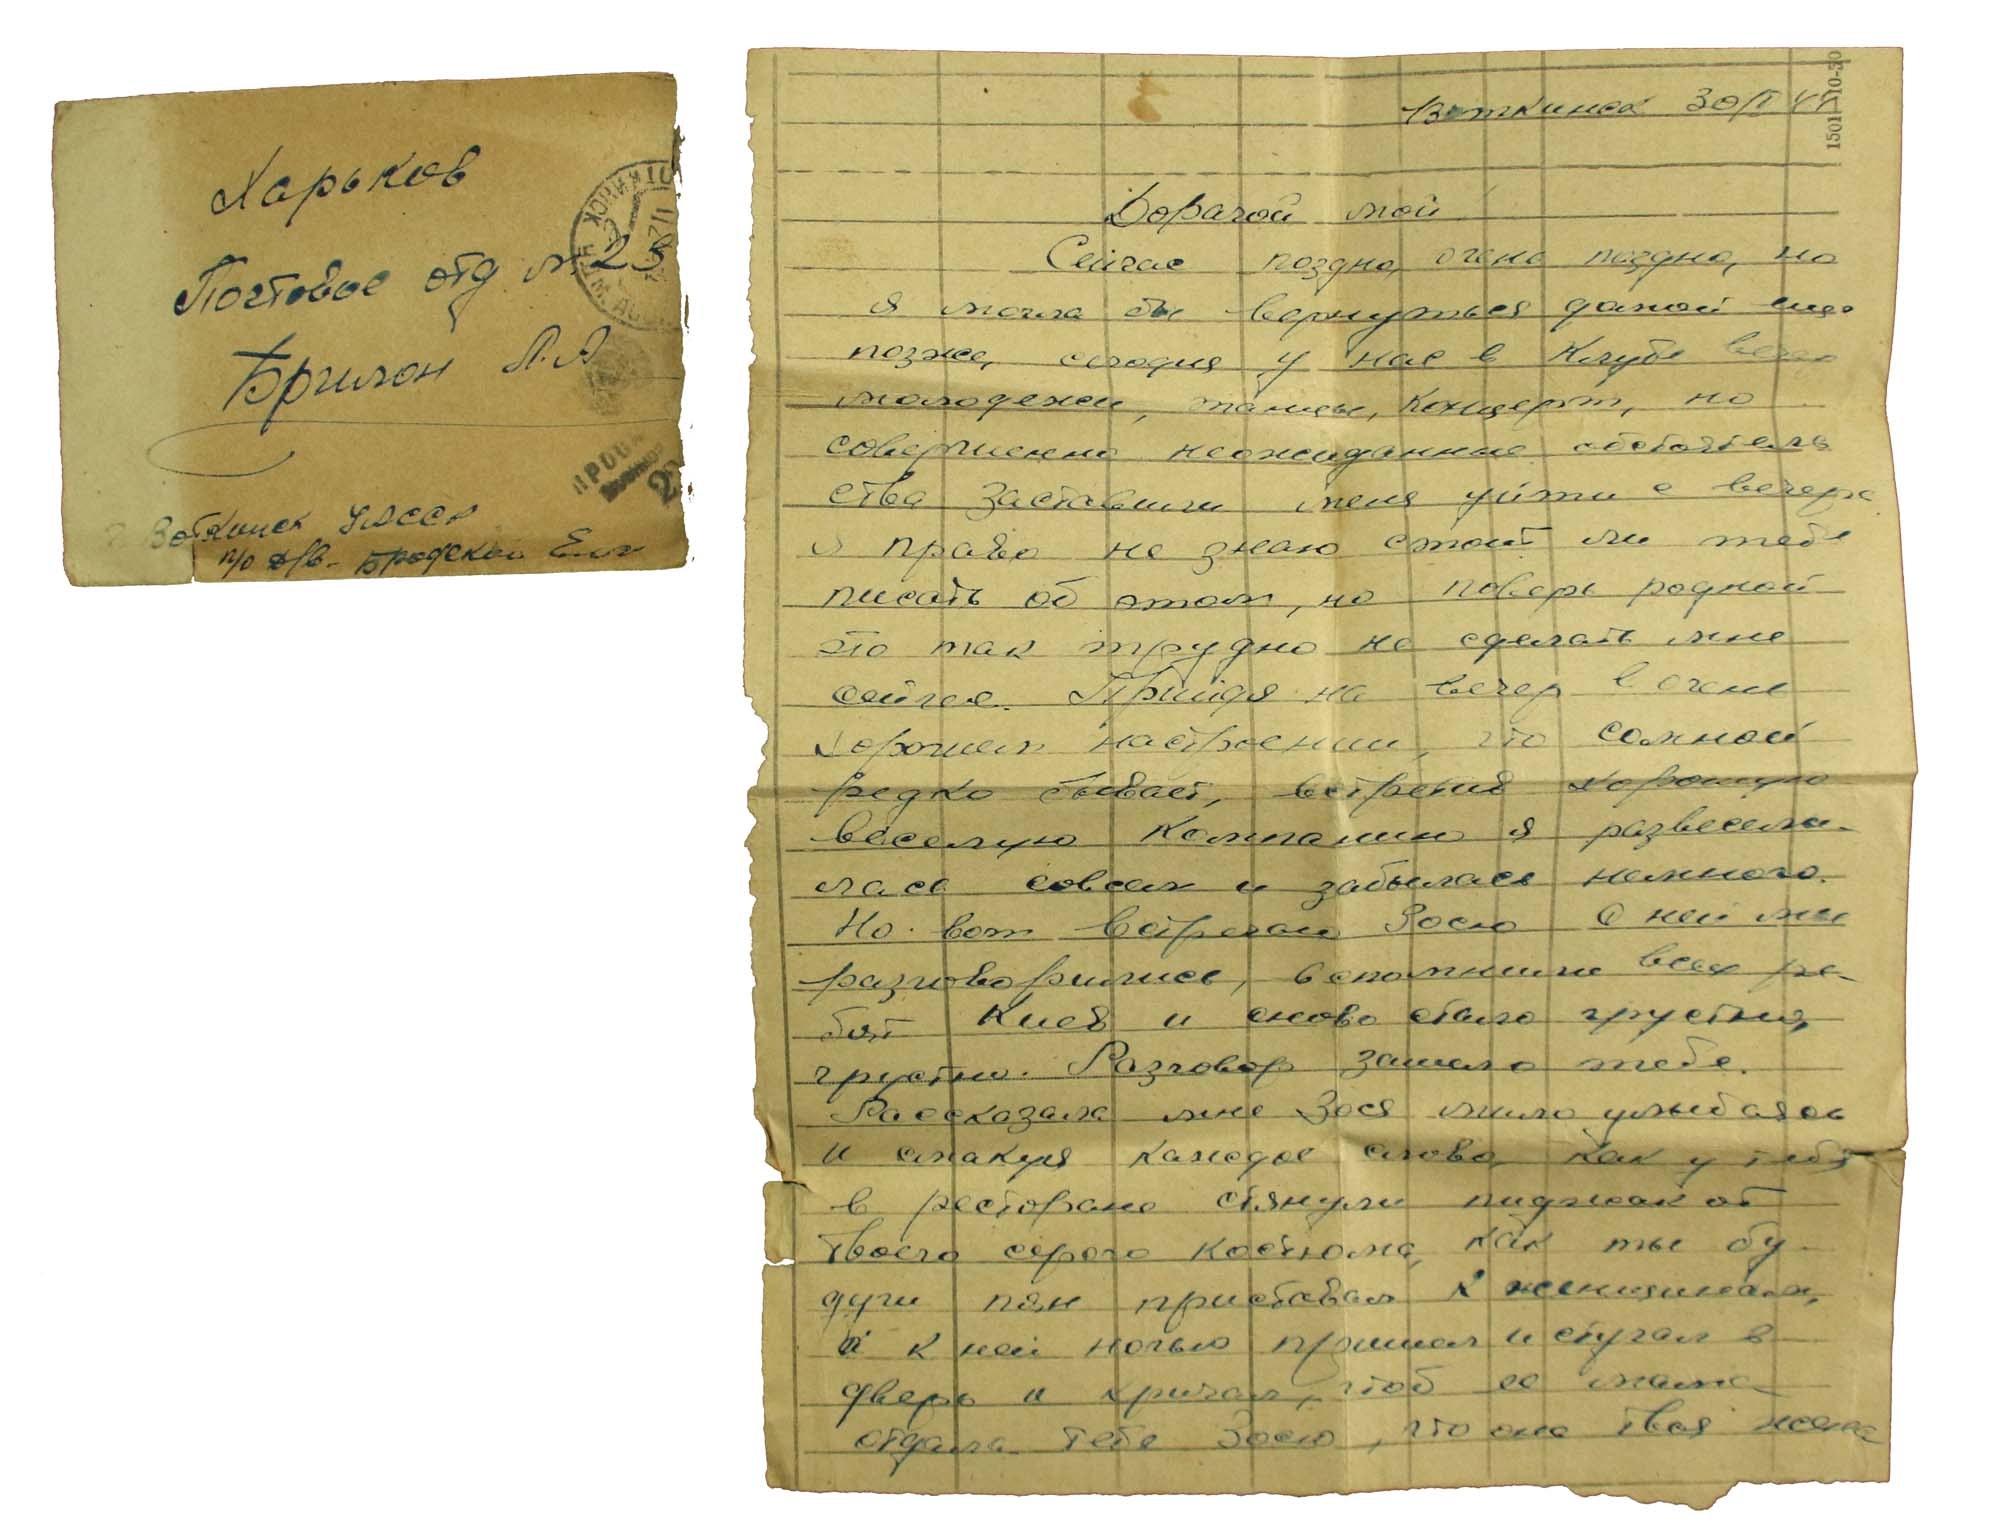 Харьков
Почтовое отд № 23
Бригмон Л.А
г Воткинск УАССР
п/о д/в. Бродской
ВОТКИНСК
1501-10-30
Воткинск 30/I 41
Дорагой мой!
Сейчас поздно, очень поздно, но
я могла бы вернуться домой еще
позже, сегодня у нас в Клубе вечер
молодежи, танцы, концерт, но
совершенно неожиданные обстоятель
ства заставили меня уйти с вечера
я право не знаю стоит ли тебе
писать об этом, но поверь родной
это так трудно не сделать мне
сейчас. Прийдя на вечер в очень
хорошем настроении, что сомной
редко бывает, встретив хорошую
веселую компанию я развесели-
лась совсем и забылась немного.
Но вот встречаю Зосю С ней мы
разговорились, вспомнили всех ре-
бят Киев и снова стало грустно,
грустно. Разговор зашел о тебе.
Рассказала мне Зося мило улыбаясь
и смакуя каждое слово, как у тебя
в ресторане стянули пиджак от
твоего серого костюма, как ты бу-
дучи пян приставал к женщинам,
и к ней ночью пришел и стучал в
дверь и кричал, чтоб ее мама
отдала тебе Зосю, что она твоя жена